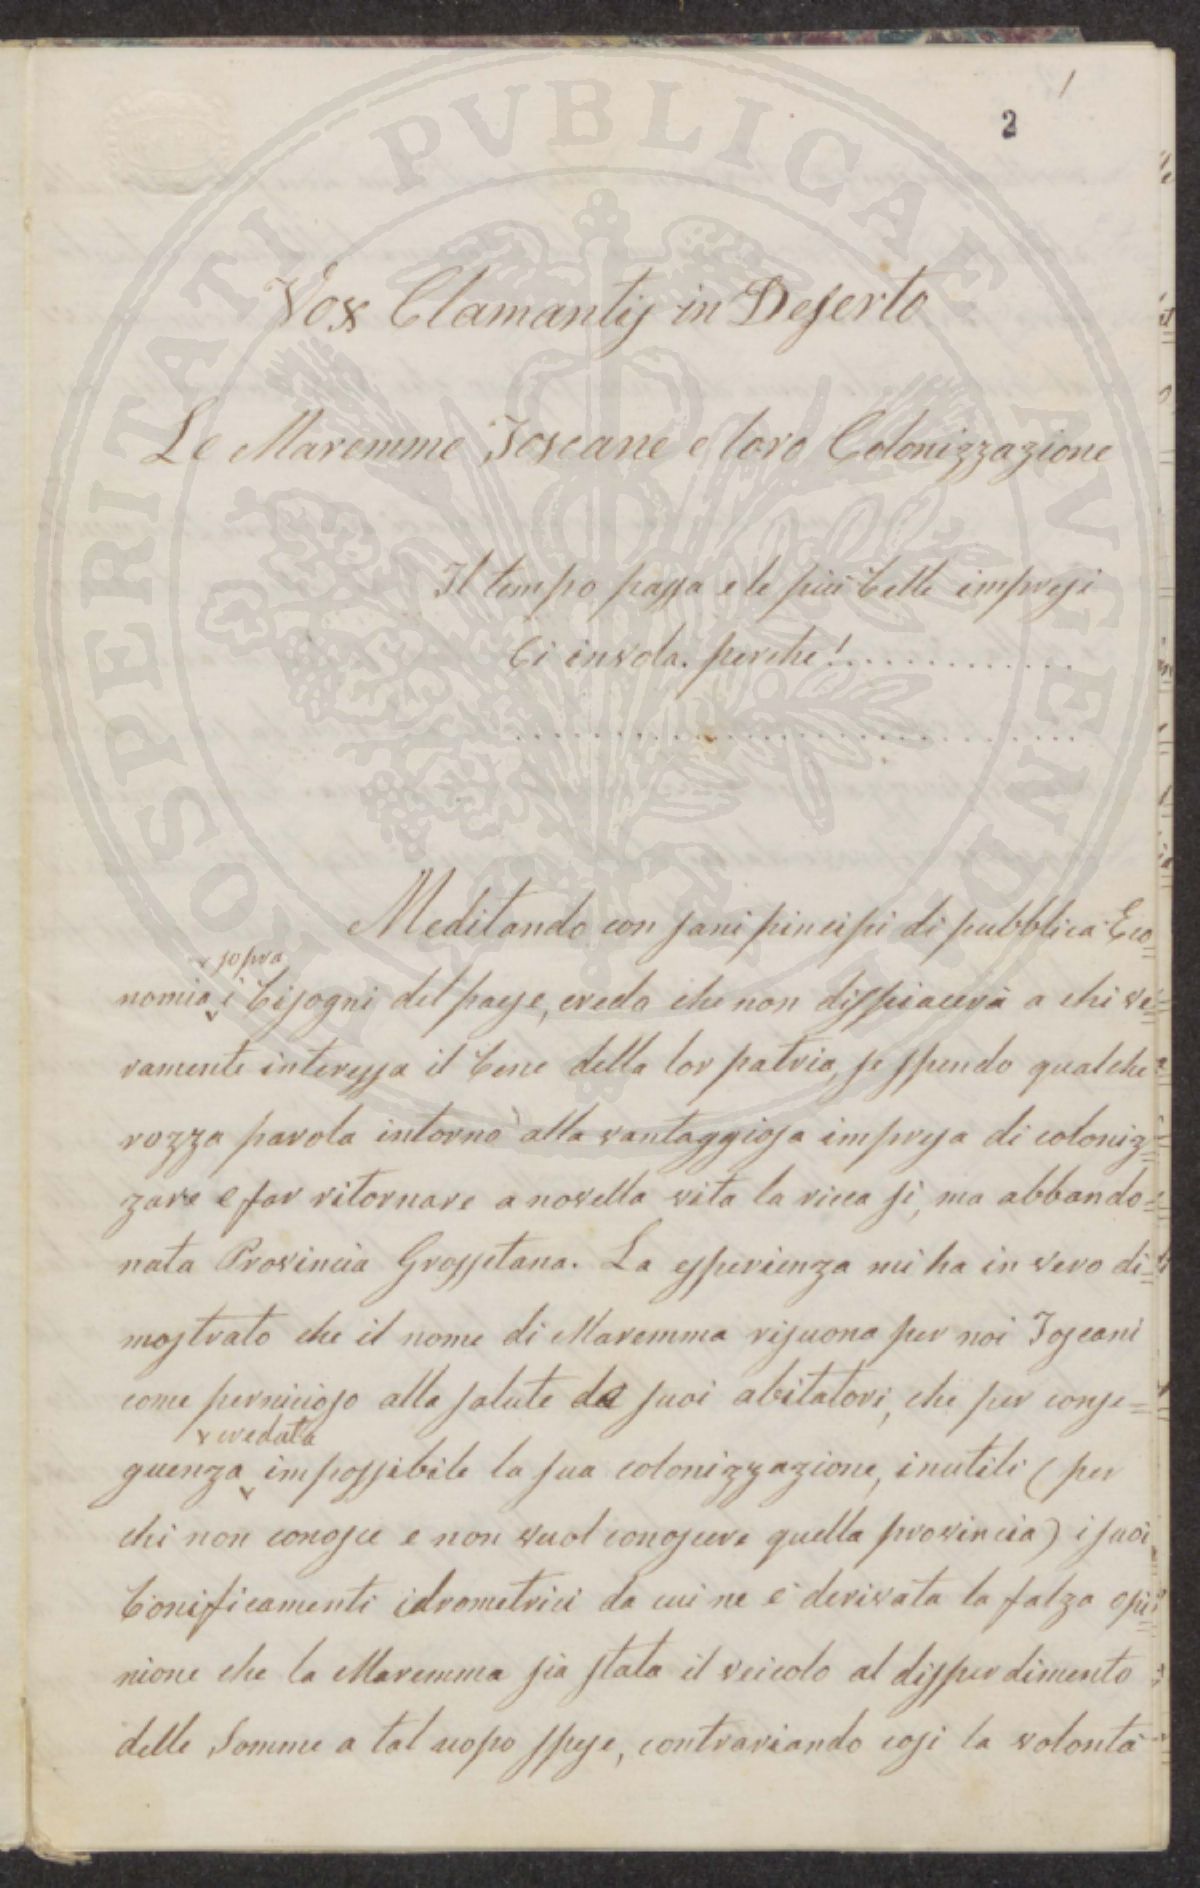 1
2
PROSPERITATI PVBLICAE AVGENDAE
Vox Clamantis in Deserto
Le Maremme Toscane e loro Colonizzazione
Il tempo passa e le più belle impresi
Ci invola. perche!.............
..............................
Meditando con sani pincipi di pubblica Eco=
sopra
nomia, i bisogni del paese, credo che non dispiacerà a chi ve=
ramente interessa il bene della lor patria, se spendo qualche
rozza parola intorno alla vantaggiosa impresa di coloniz=
zare e far ritornare a novella vita la ricca si, ma abbando=
nata Provincia Grossetana. La esperienza mi ha in vero di=
mostrato che il nome di Maremma risuona per noi Toscani
come pernicioso alla salute de suoi abitatori, che per conse=
credata
guenza impossibile la sua colonizzazione, inutili (per
chi non conosce e non vuol conoscere quella provincia) i suoi
bonificamenti idrometrici da cui ne è derivata la falza opi=
nione che la Maremma sia stata il veicolo al disperdimento
delle Somme a tal uopo spese, contrariando cosi la volontà